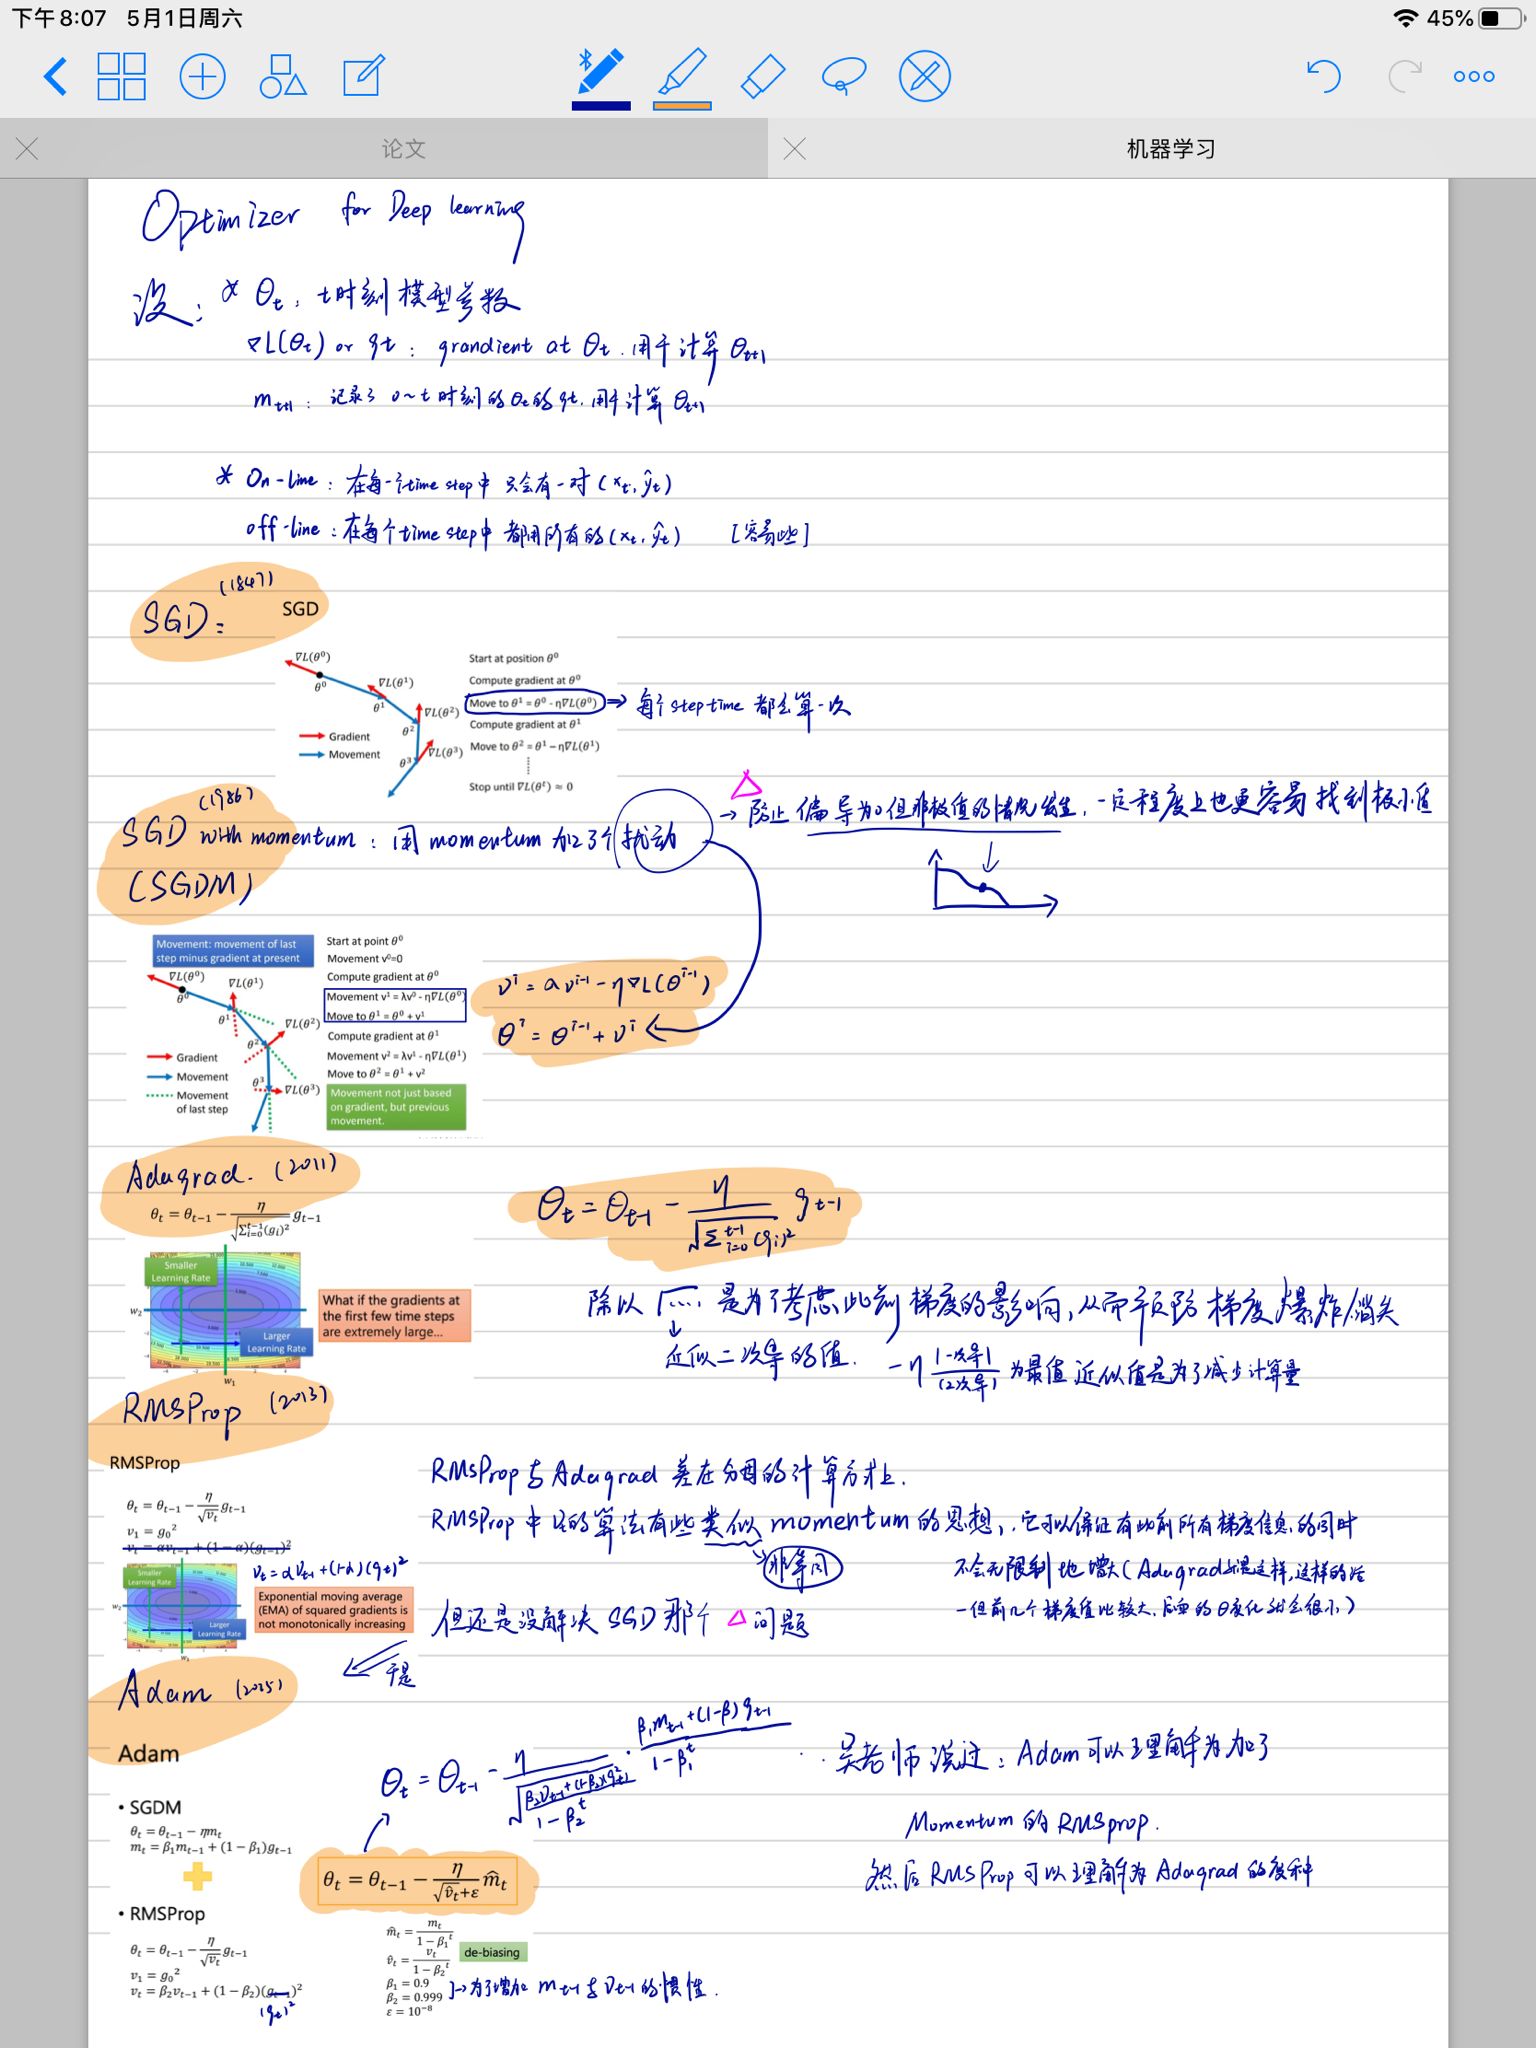 下午8:07 5月1日周六
45%
论文
机器学习
Optimizer for Deep learning
设: * θt: t时刻模型参数
∇L(θt) or gt: grandient at θt. 用于计算 θt+1
mt+1: 记录了 0~t 时刻的θt的gt. 用于计算 θt+1
* On-line: 在每一个time step中 只会有一对 (xt, ŷt)
off-line: 在每个time step中 都用所有的(xt, ŷt) [容易些]
(1847)
SGD:
SGD
∇L(θ⁰)
θ⁰
∇L(θ¹)
θ¹
∇L(θ²)
θ²
∇L(θ³)
θ³
Gradient
Movement
Start at position θ⁰
Compute gradient at θ⁰
Move to θ¹ = θ⁰ - η∇L(θ⁰)
→ 每个 step time 都会算一次
Compute gradient at θ¹
Move to θ² = θ¹ – η∇L(θ¹)
⋮
Stop until ∇L(θᵗ) ≈ 0
(1986)
SGD with momentum: 用 momentum 加了个扰动
(SGDM)
△
→ 防止 偏导为0但非极值的情况发生, 一定程度上也更容易找到极小值
Movement: movement of last
step minus gradient at present
∇L(θ⁰)
θ⁰
∇L(θ¹)
θ¹
∇L(θ²)
θ²
∇L(θ³)
θ³
Gradient
Movement
Movement
of last step
Start at point θ⁰
Movement v⁰=0
Compute gradient at θ⁰
Movement v¹ = λv⁰ - η∇L(θ⁰)
Move to θ¹ = θ⁰ + v¹
Compute gradient at θ¹
Movement v² = λv¹ - η∇L(θ¹)
Move to θ² = θ¹ + v²
Movement not just based
on gradient, but previous
movement.
vⁱ = αvⁱ⁻¹ - η∇L(θⁱ⁻¹)
θⁱ = θⁱ⁻¹ + vⁱ
Adagrad. (2011)
θt = θt−1 − η/√(Σᵢ₌₀ᵗ⁻¹(gi)²) gt−1
θt = θt-1 - η/√(Σᵢ₌₀ᵗ⁻¹(gi)²) gt-1
Smaller
Learning Rate
w₂
Larger
Learning Rate
w₁
What if the gradients at
the first few time steps
are extremely large...
除以 √.... 是为了考虑此前梯度的影响, 从而预防 梯度爆炸/消失
↓
近似二次导的值. -η |一次导|/(2次导) 为最值 近似值是为了减少计算量
RMSProp (2013)
RMSProp
θt = θt−1 − η/√vt gt−1
v₁ = g₀²
vt = αvt−1 + (1 − α)(gt−1)²
vt = αvt-1 + (1-α)(gt)²
Smaller
Learning Rate
w₂
Larger
Learning Rate
w₁
Exponential moving average
(EMA) of squared gradients is
not monotonically increasing
RMSProp与Adagrad 差在分母的计算方式上.
RMSProp中 vt的算法有些类似 momentum的思想, 它可以保证有此前所有梯度信息的同时
非等同
不会无限制地增大(Adagrad就是这样, 这样的话
一但前几个梯度值比较大, 后面的θ变化就会很小)
但还是没解决 SGD 那个 △ 问题
于是
Adam (2015)
Adam
θt = θt-1 - η/√((β₂vt-1+(1-β₂)g²t-1)/(1-β₂ᵗ)) · (β₁mt-1+(1-β)gt-1)/(1-β₁ᵗ)
吴老师说过: Adam可以理解为加了
Momentum 的 RMSprop.
然后 RMSProp可以理解为 Adagrad 的变种
• SGDM
θt = θt−1 − ηmt
mt = β₁mt−1 + (1 − β₁)gt−1
θt = θt−1 − η/(√v̂t+ε) m̂t
• RMSProp
θt = θt−1 − η/√vt gt−1
v₁ = g₀²
vt = β₂vt−1 + (1 − β₂)(gt−1)²
(gt)²
m̂t = mt/(1 − β₁ᵗ)
v̂t = vt/(1 − β₂ᵗ)
de-biasing
β₁ = 0.9
β₂ = 0.999
ε = 10⁻⁸
→为了增加 mt-1 与 vt-1 的惯性.